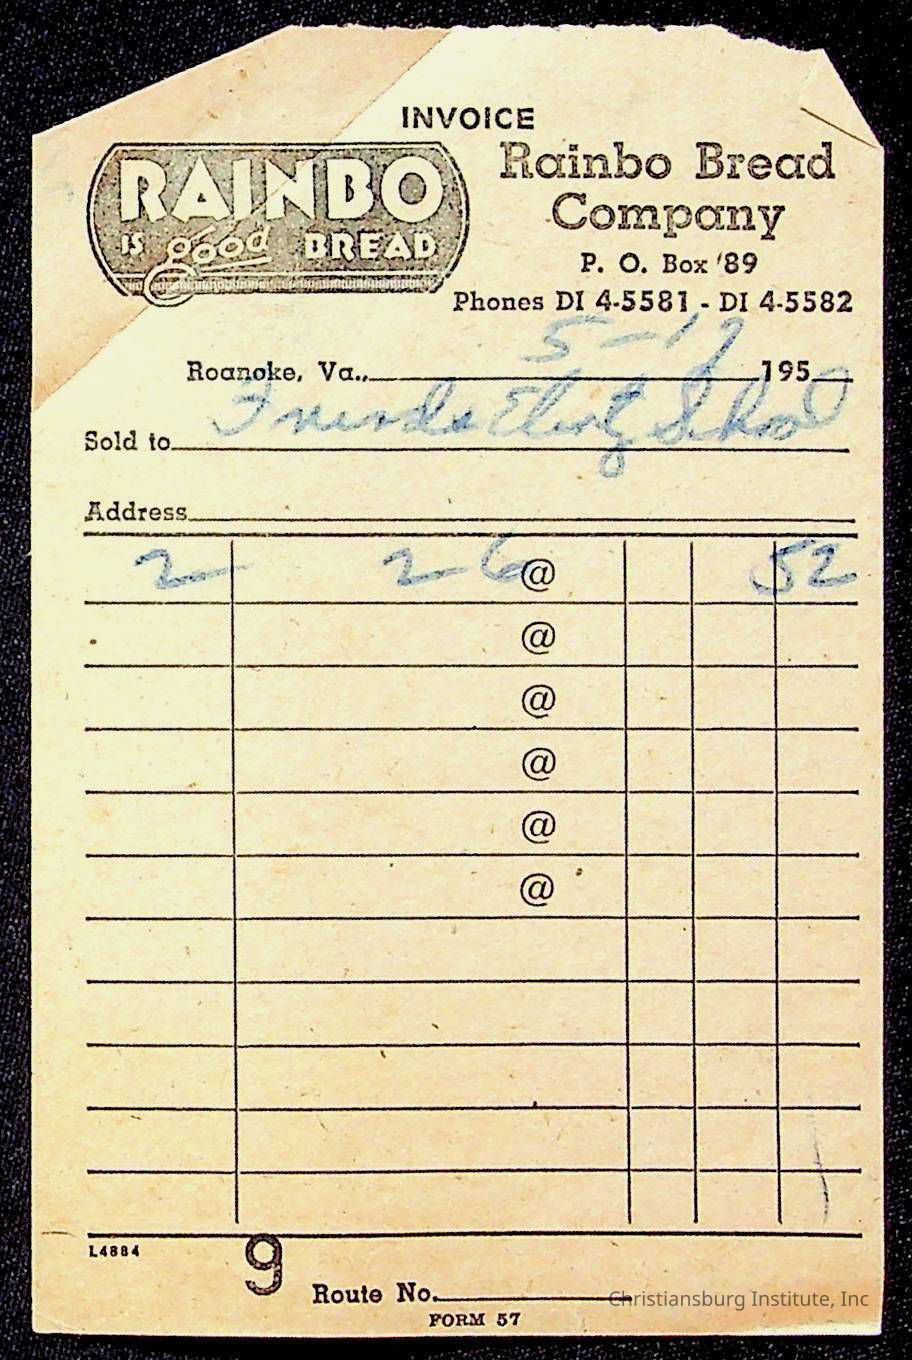 INVOICE
RAINBO
IS good BREAD
Rainbo Bread
Company
P. O. Box '89
Phones DI 4-5581 - DI 4-5582
5-19
Roanoke, Va., 195
Sold to Friends Elem School
Address
2 26 @ 52
@
@
@
@
@
L4884
9
Route No.
FORM 57
Christiansburg Institute, Inc